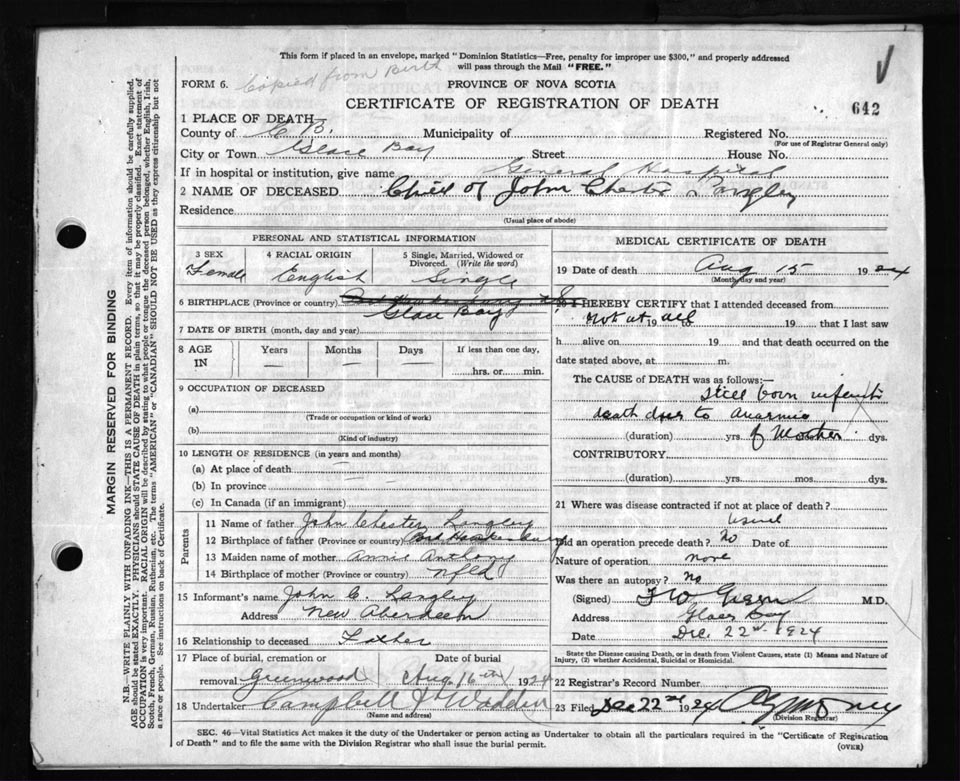 This form if placed in an envelope, marked "Dominion Statistics—Free, penalty for improper use $300," and properly addressed
will pass through the Mail "FREE."
FORM 6. Copied from Birth PROVINCE OF NOVA SCOTIA
CERTIFICATE OF REGISTRATION OF DEATH
642
1 PLACE OF DEATH
County of C B. Municipality of Registered No.
(For use of Registrar General only)
City or Town Glace Bay Street House No.
If in hospital or institution, give name General Hospital
2 NAME OF DECEASED Child of John Chester Langley
Residence
(Usual place of abode)
PERSONAL AND STATISTICAL INFORMATION
3 SEX 4 RACIAL ORIGIN 5 Single, Married, Widowed or Divorced. (Write the word)
Female English Single
6 BIRTHPLACE (Province or country)
Glace Bay
7 DATE OF BIRTH (month, day and year)
8 AGE IN Years Months Days If less than one day,
— — — hrs. or min.
9 OCCUPATION OF DECEASED
(a)
(Trade or occupation or kind of work)
(b)
(Kind of industry)
10 LENGTH OF RESIDENCE (in years and months)
(a) At place of death —
(b) In province
(c) In Canada (if an immigrant)
Parents
11 Name of father John Chester Langley
12 Birthplace of father (Province or country) Port Hawkesbury
13 Maiden name of mother Annie Anthony
14 Birthplace of mother (Province or country) Nfld
15 Informant's name John C. Langley
Address New Aberdeen
16 Relationship to deceased Father
17 Place of burial, cremation or removal Greenwood Date of burial Aug 16th 1924
18 Undertaker Campbell & Wadden
(Name and address)
MEDICAL CERTIFICATE OF DEATH
19 Date of death Aug 15 1924
(Month, day and year)
20 I HEREBY CERTIFY that I attended deceased from
Not at 19 all to 19 that I last saw
h alive on 19 and that death occurred on the
date stated above, at m.
The CAUSE OF DEATH was as follows:—
Still born infant
death due to Anaemia
(duration) yrs. of Mother dys.
CONTRIBUTORY
(duration) yrs. mos. dys.
21 Where was disease contracted if not at place of death?
Did an operation precede death? No Date of
Nature of operation none
Was there an autopsy? No
(Signed) M.D.
Address Glace Bay
Date Dec. 22nd 1924
State the Disease causing Death, or in death from Violent Causes, state (1) Means and Nature of
Injury, (2) whether Accidental, Suicidal or Homicidal.
22 Registrar's Record Number
23 Filed Dec 22nd 1924
(Division Registrar)
SEC. 46—Vital Statistics Act makes it the duty of the Undertaker or person acting as Undertaker to obtain all the particulars required in the "Certificate of Registration
of Death" and to file the same with the Division Registrar who shall issue the burial permit.
(OVER)
MARGIN RESERVED FOR BINDING
N.B.—WRITE PLAINLY WITH UNFADING INK—THIS IS A PERMANENT RECORD. Every item of information should be carefully supplied.
AGE should be stated EXACTLY. PHYSICIANS should STATE CAUSE OF DEATH in plain terms, so that it may be properly classified. Exact statement of
OCCUPATION is very important. RACIAL ORIGIN will be described by stating to what people or tongue the deceased person belonged, whether English, Irish,
Scotch, French, German, Russian, Ruthenian, etc. The terms "AMERICAN" or "CANADIAN" SHOULD NOT BE USED as they express citizenship but not
a race or people. See instructions on back of Certificate.